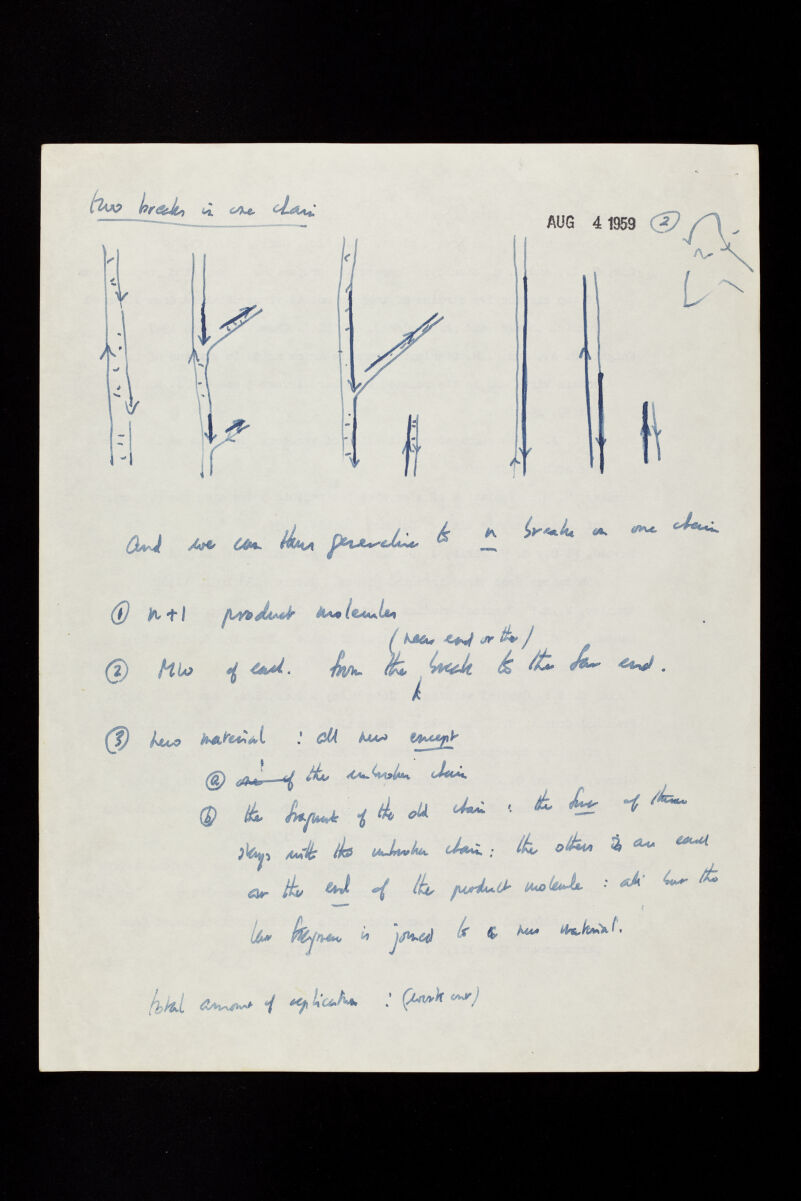 two breaks in one chain
AUG 4 1959 ②
And we can thus generalise to n breaks in one chain
① n+1 product molecules
(near end or the)
② MW of each. from the break to the far end.
③ new material : all new except
ⓐ one of the unbroken chain
ⓑ the fragments of the old chain : the first of these
stays with the unbroken chain : the others are each
at the end of the product molecule : all but the
last fragment is joined to new material.
total amount of replication : (work out)